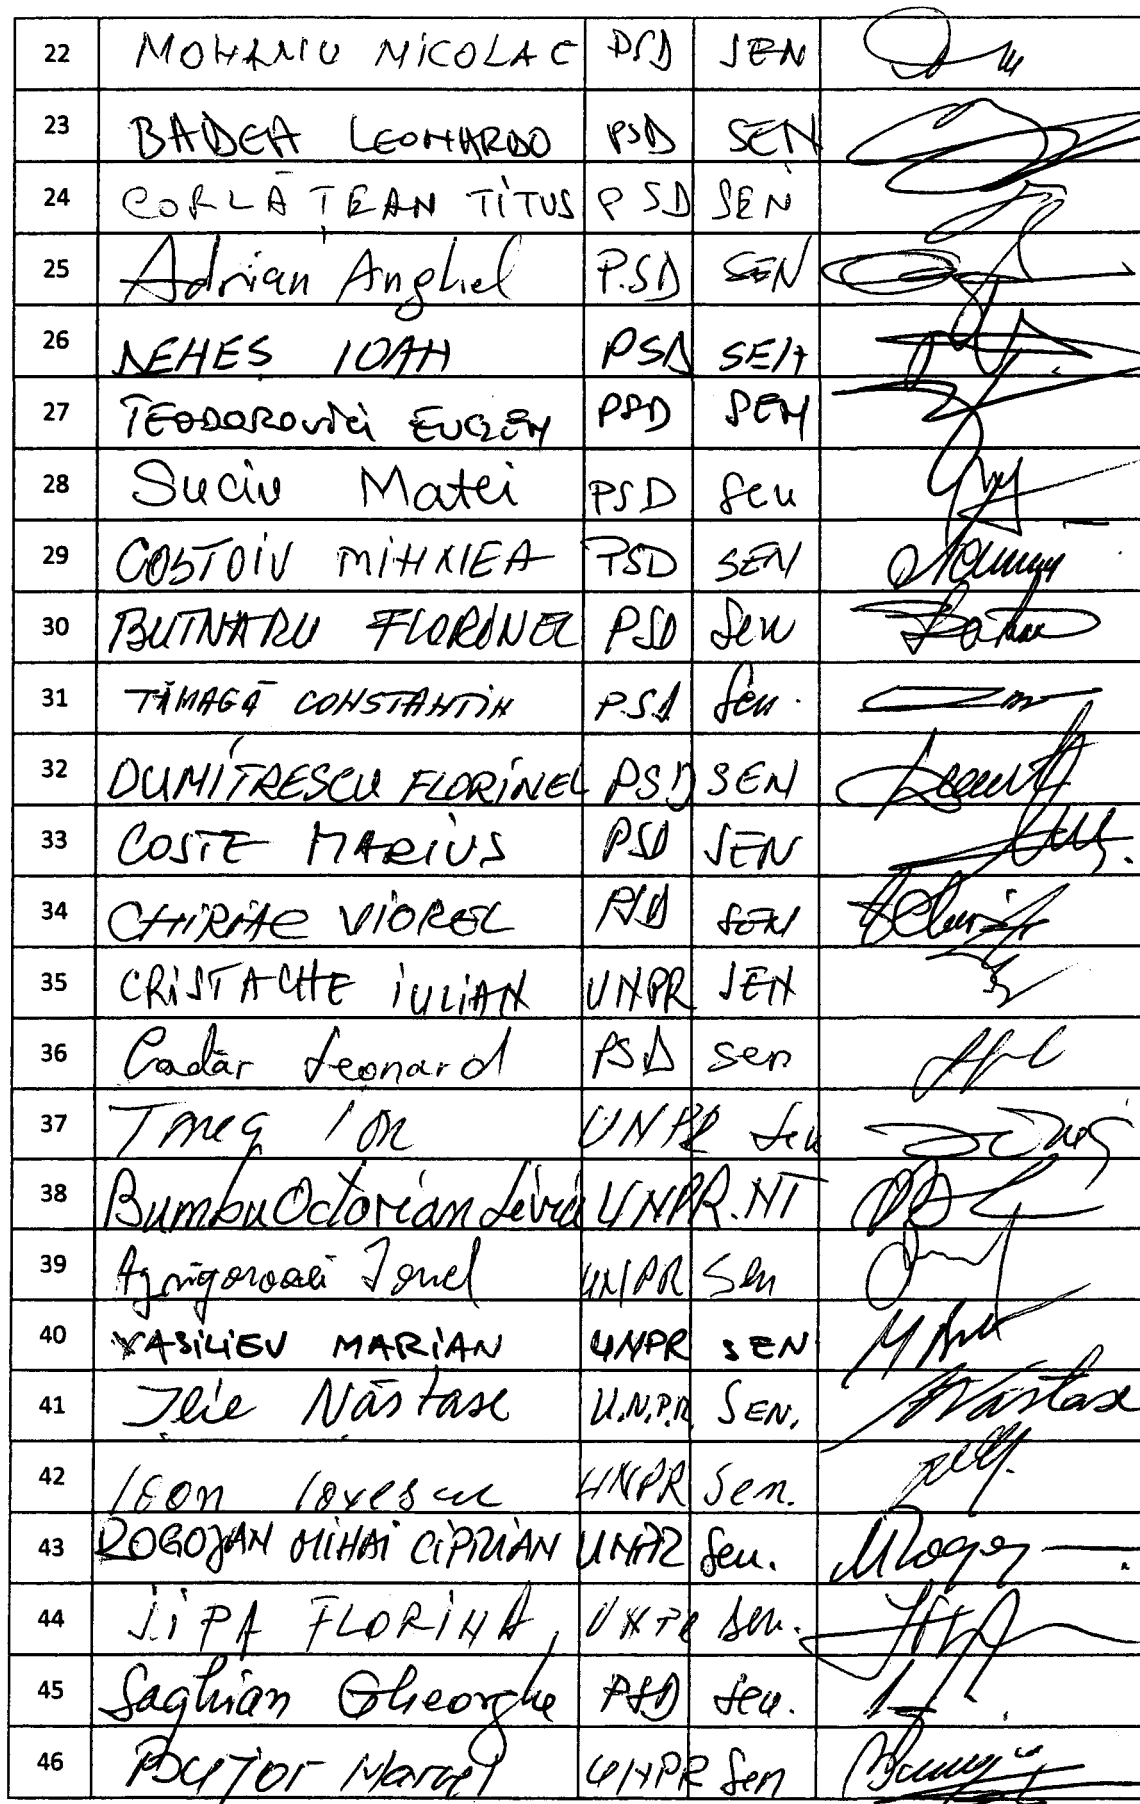 22 MOHANU NICOLAE PSD SEN
23 BADEA LEONARDO PSD SEN
24 CORLĂȚEAN TITUS PSD SEN
25 Adrian Anghel P.SD SEN
26 NEHEȘ IOAN PSD SEN
27 TEODOROVICI EUGEN PSD SEN
28 Suciu Matei PSD Sen
29 COSTOIU MIHNEA PSD SEN
30 BUTNARU FLORINEL PSD Sen
31 TĂMAGĂ CONSTANTIN PSD Sen.
32 DUMITRESCU FLORINEL PSD SEN
33 COSTE MARIUS PSD SEN
34 CHIRIAC VIOREL PSD SEN
35 CRISTACHE IULIAN UNPR SEN
36 Cadăr Leonard PSD Sen
37 Ion UNPR Sen
38 Bumbu Octavian Liviu UNPR.NT
39 Agrigoroaei Ionel UNPR Sen
40 VASILIEV MARIAN UNPR SEN
41 Ilie Năstase U.N.P.R. SEN. Năstase
42 UNPR Sen.
43 ROGOJAN MIHAI CIPRIAN UNPR Sen.
44 JIPA FLORINA UNPR Sen.
45 Saghian Gheorghe PSD Sen.
46 Bujor Marcel UNPR Sen